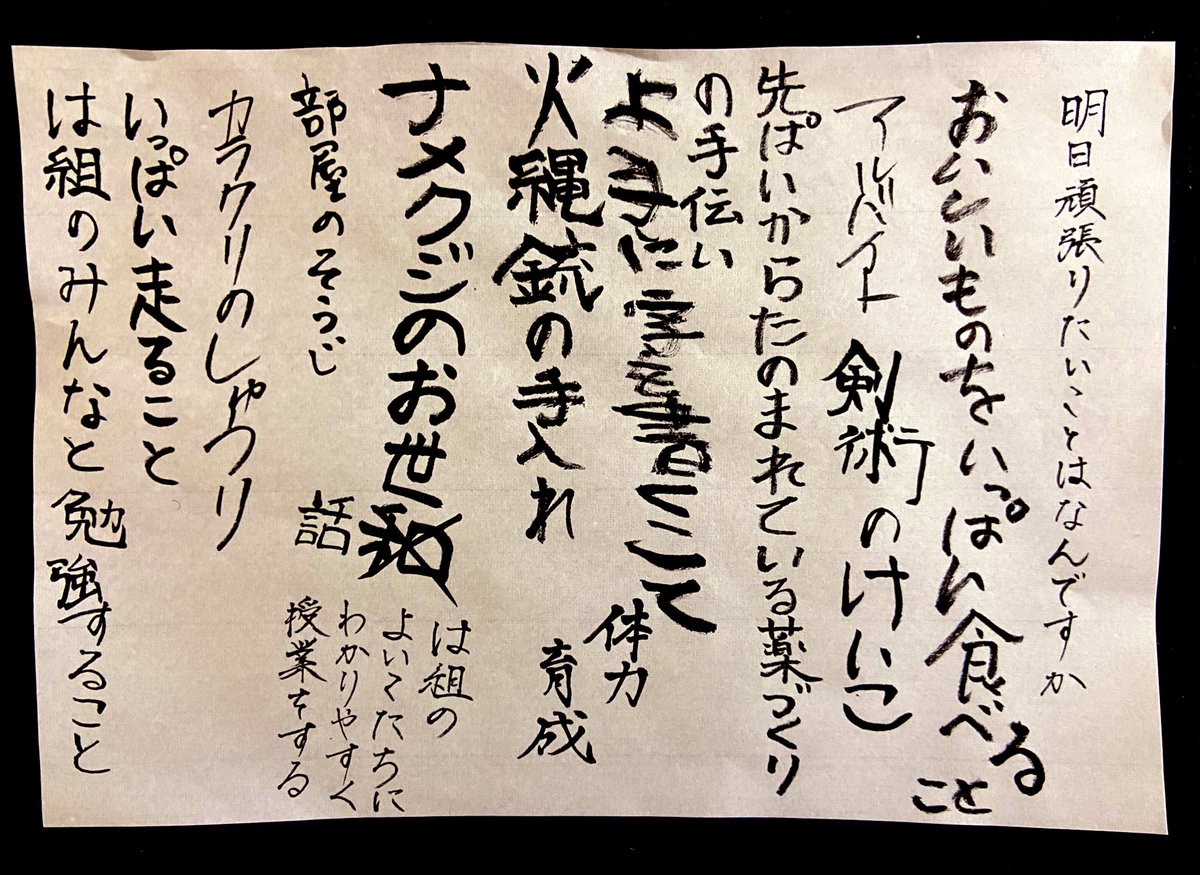 明日頑張りたいことはなんですか
おいしいものをいっぱい食べること
アルバイト
剣術のけいこ
先ぱいからたのまれている薬づくり
の手伝い
に字を書くこ
体力
育成
火縄銃の手入れ
ナメクジのお世
話
は組の
よいこたちに
わかりやすく
授業をする
部屋のそうじ
カラクリのしゅうり
いっぱい走ること
は組のみんなと勉強すること